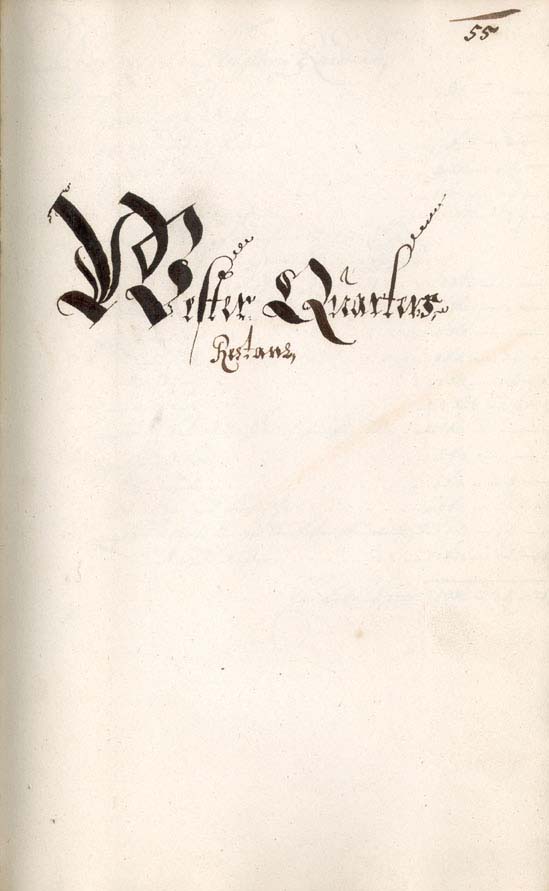 55
Wester Quarters
Restans,